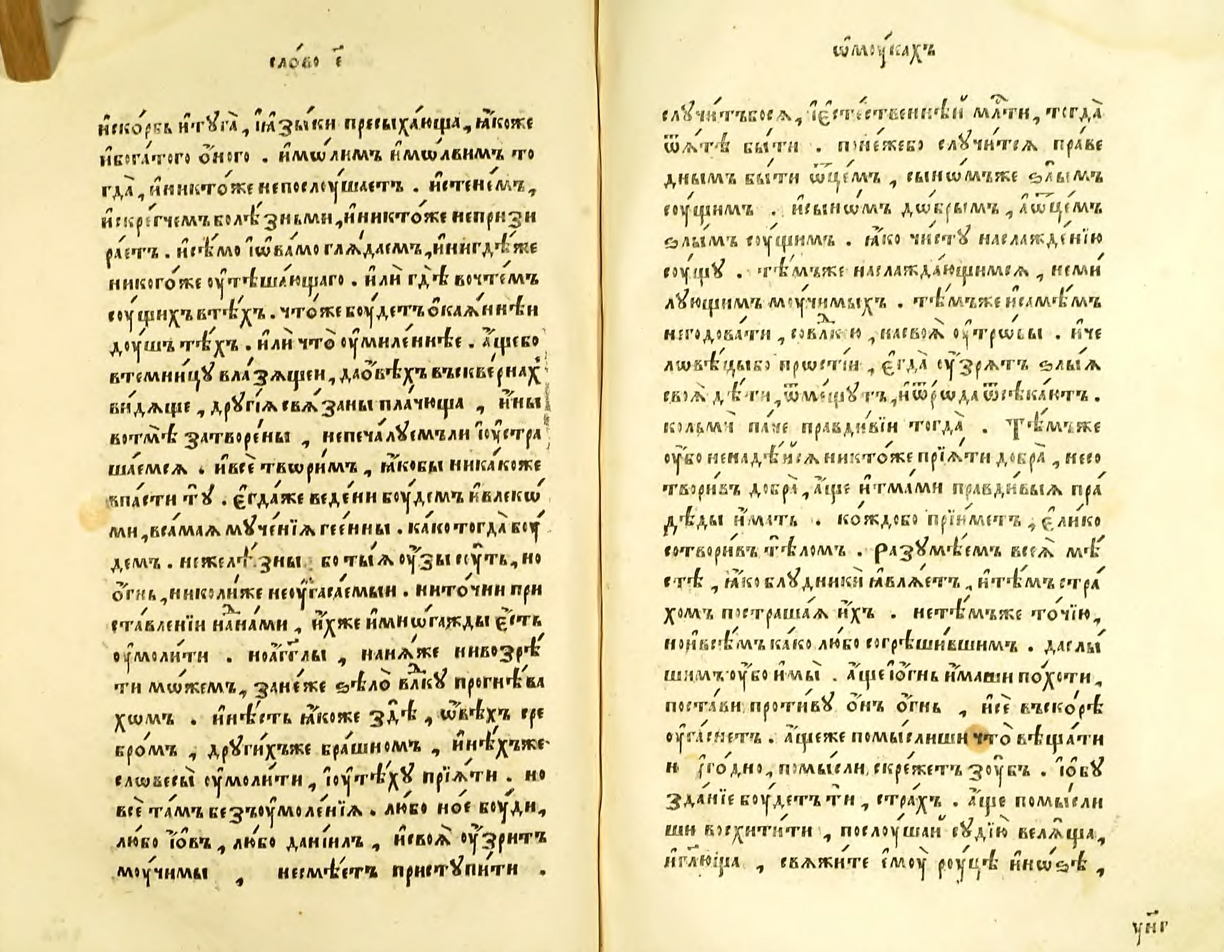 сло́во е҃
и҆ско́рбь и҆туга̀, і҆ꙗ҆зы́ки пресыха́юща, ꙗ҆́коже
и҆бога́того ѻ҆́ного . и҆мѡ́лимъ и҆мѡ́лвимъ то
гда̀, и҆никто́же непослоу́шаетъ . и҆сте́немъ,
и҆скре́гчемъ болѣ́зньми, и҆никто́же непризи
ра́етъ . и҆сѣ́мо і҆ѡ҆ва́мо глѧ́даемъ, и҆нигдѣ́же
никого́же оу҆тѣша́ющаго . и҆лѝ гдѣ̀ вочте́мъ
соу́щихъ втѣ́хъ . что́же боу́детъ ѻ҆каѧ́ннѣи
доу́шъ тѣ́хъ . и҆лѝ что̀ оу҆миле́ннѣе . а҆́щебо
втемни́цу вла́зѧщеи, даѻ҆́вѣхъ въскве́рнах
ви́дѧще, другі́ѧ свѧ́заны пла́чюща , и҆́ны
вотмѣ̀ затворе́ны , непеча́луемъли і҆оу҆стра
ша́емсѧ . и҆всѐ твѡри́мъ, ꙗ҆́кобы ника́коже
впа́сти тꙋ̀ . є҆гда́же веде́ни боу́демъ и҆влеко́
ми, вса́маѧ муче́нїѧ гее́нны . ка́котогда̀ боу́
демъ . нежелѣ́зны боты́ѧ оу҆́зы соу́ть, но
ѻ҆́гнь, николи́же неоу҆гаса́емыи . ниточни при
ставле́нїи на́нами , и҆́хже и҆мнѡ́гажды є҆́сть
оу҆моли́ти . ноа҆́гг҃лы , нанѧ́же нивозрѣ́
ти мѡ́жемъ, зане́же ѕѣлѡ̀ влⷣку прогнѣ́ва
хѡмъ . и҆нѣ́сть ꙗ҆́коже здѣ̀ , ѡ҆́вѣхъ сре
бро́мъ , други́хъже бра́шномъ , и҆и҆нѣ́хъже
слѡвесы̀ оу҆моли́ти , і҆оу҆тѣ́ху прїѧ́ти . но
всѐ та́мъ безъоу҆моле́нїѧ . любо но́е боу́ди,
лю́бо і҆́ѡвъ , лю́бо данїи́лъ , и҆своѧ̀ оу҆́зритъ
моу́чимы , несмѣ́етъ пристꙋпи́ти .
ѡ҆моу́кахъ
случи́тъбосѧ, і҆є҆сте́ственнѣй млⷭ҇ти, тогда̀
ѿѧ́тѣ бы́ти . поне́жебо случи́тсѧ пра́ве
днымъ бы́ти ѻ҆ц҃е́мъ , сынѡ́мъже ѕлы́мъ
соу́щимъ . и҆сынѡ́мъ дѡ́брымъ , а҆ѻ҆ц҃е́мъ
ѕлы́мъ соу́щимъ . ꙗ҆́ко чи́сту наслажде́нїю
соу́щу . тѣ́мъже наслажда́ющимсѧ , неми́
лующимъ моу́чимыхъ . тѣ́мъже и҆самѣ́мъ
негодова́ти , совлⷣкою , насвоѧ̀ оу҆трѡ́бы . и҆че
лѡвѣ́цыбо прѡсті́и , є҆гда̀ оу҆́зрѧтъ ѕлы́ѧ
своѧ̀ дѣ́ти, ѿме́щутъ, и҆ѿро́да ѿсѣка́ютъ .
кольмѝ па́че правди́вїи тогда̀ . Тѣ́мъже
оу҆́бо ненадѣ́йсѧ никто́же прїѧ́ти добра̀ , несо
твори́въ добра̀, а҆́ще и҆тма́ми правди́выѧ пра́
дѣды и҆́мать . ко́ждобо прїи́метъ , є҆ли́ко
сотвори́въ тѣ́ломъ . Разумѣ́емъ всеѧ̀ мѣ́
стѣ , ꙗ҆́ко блудникѝ ꙗ҆влѧ́етъ , и҆тѣ́мъ стра́
хомъ постраша́ѧ и҆́хъ . нетѣ́мъже то́чїю,
нои҆всѣ́мъ ка́ко лю́бо согрѣши́вшимъ . даслы́
шимъ оу҆́бо и҆мы̀ . а҆́ще і҆ѻ҆́гнь и҆́маши по́хоти ,
поста́ви проти́ву ѻ҆́нъ ѻ҆́гнь , и҆сѐ въско́рѣ
оу҆га́снетъ . а҆́щеже помы́слиши что̀ вѣща́ти
н уго́дно, помы́сли, скре́жетъ зоу́бъ . і҆ѡ҆бу
зда́нїе боу́детъ ти , стра́хъ . а҆́ще помы́сли
ши восхити́ти , послоу́шай судїю̀ велѧ́ща,
и҆гл҃юща , свѧжи́те є҆моу̀ ро́уцѣ и҆но́ѕѣ ,
у҃нг